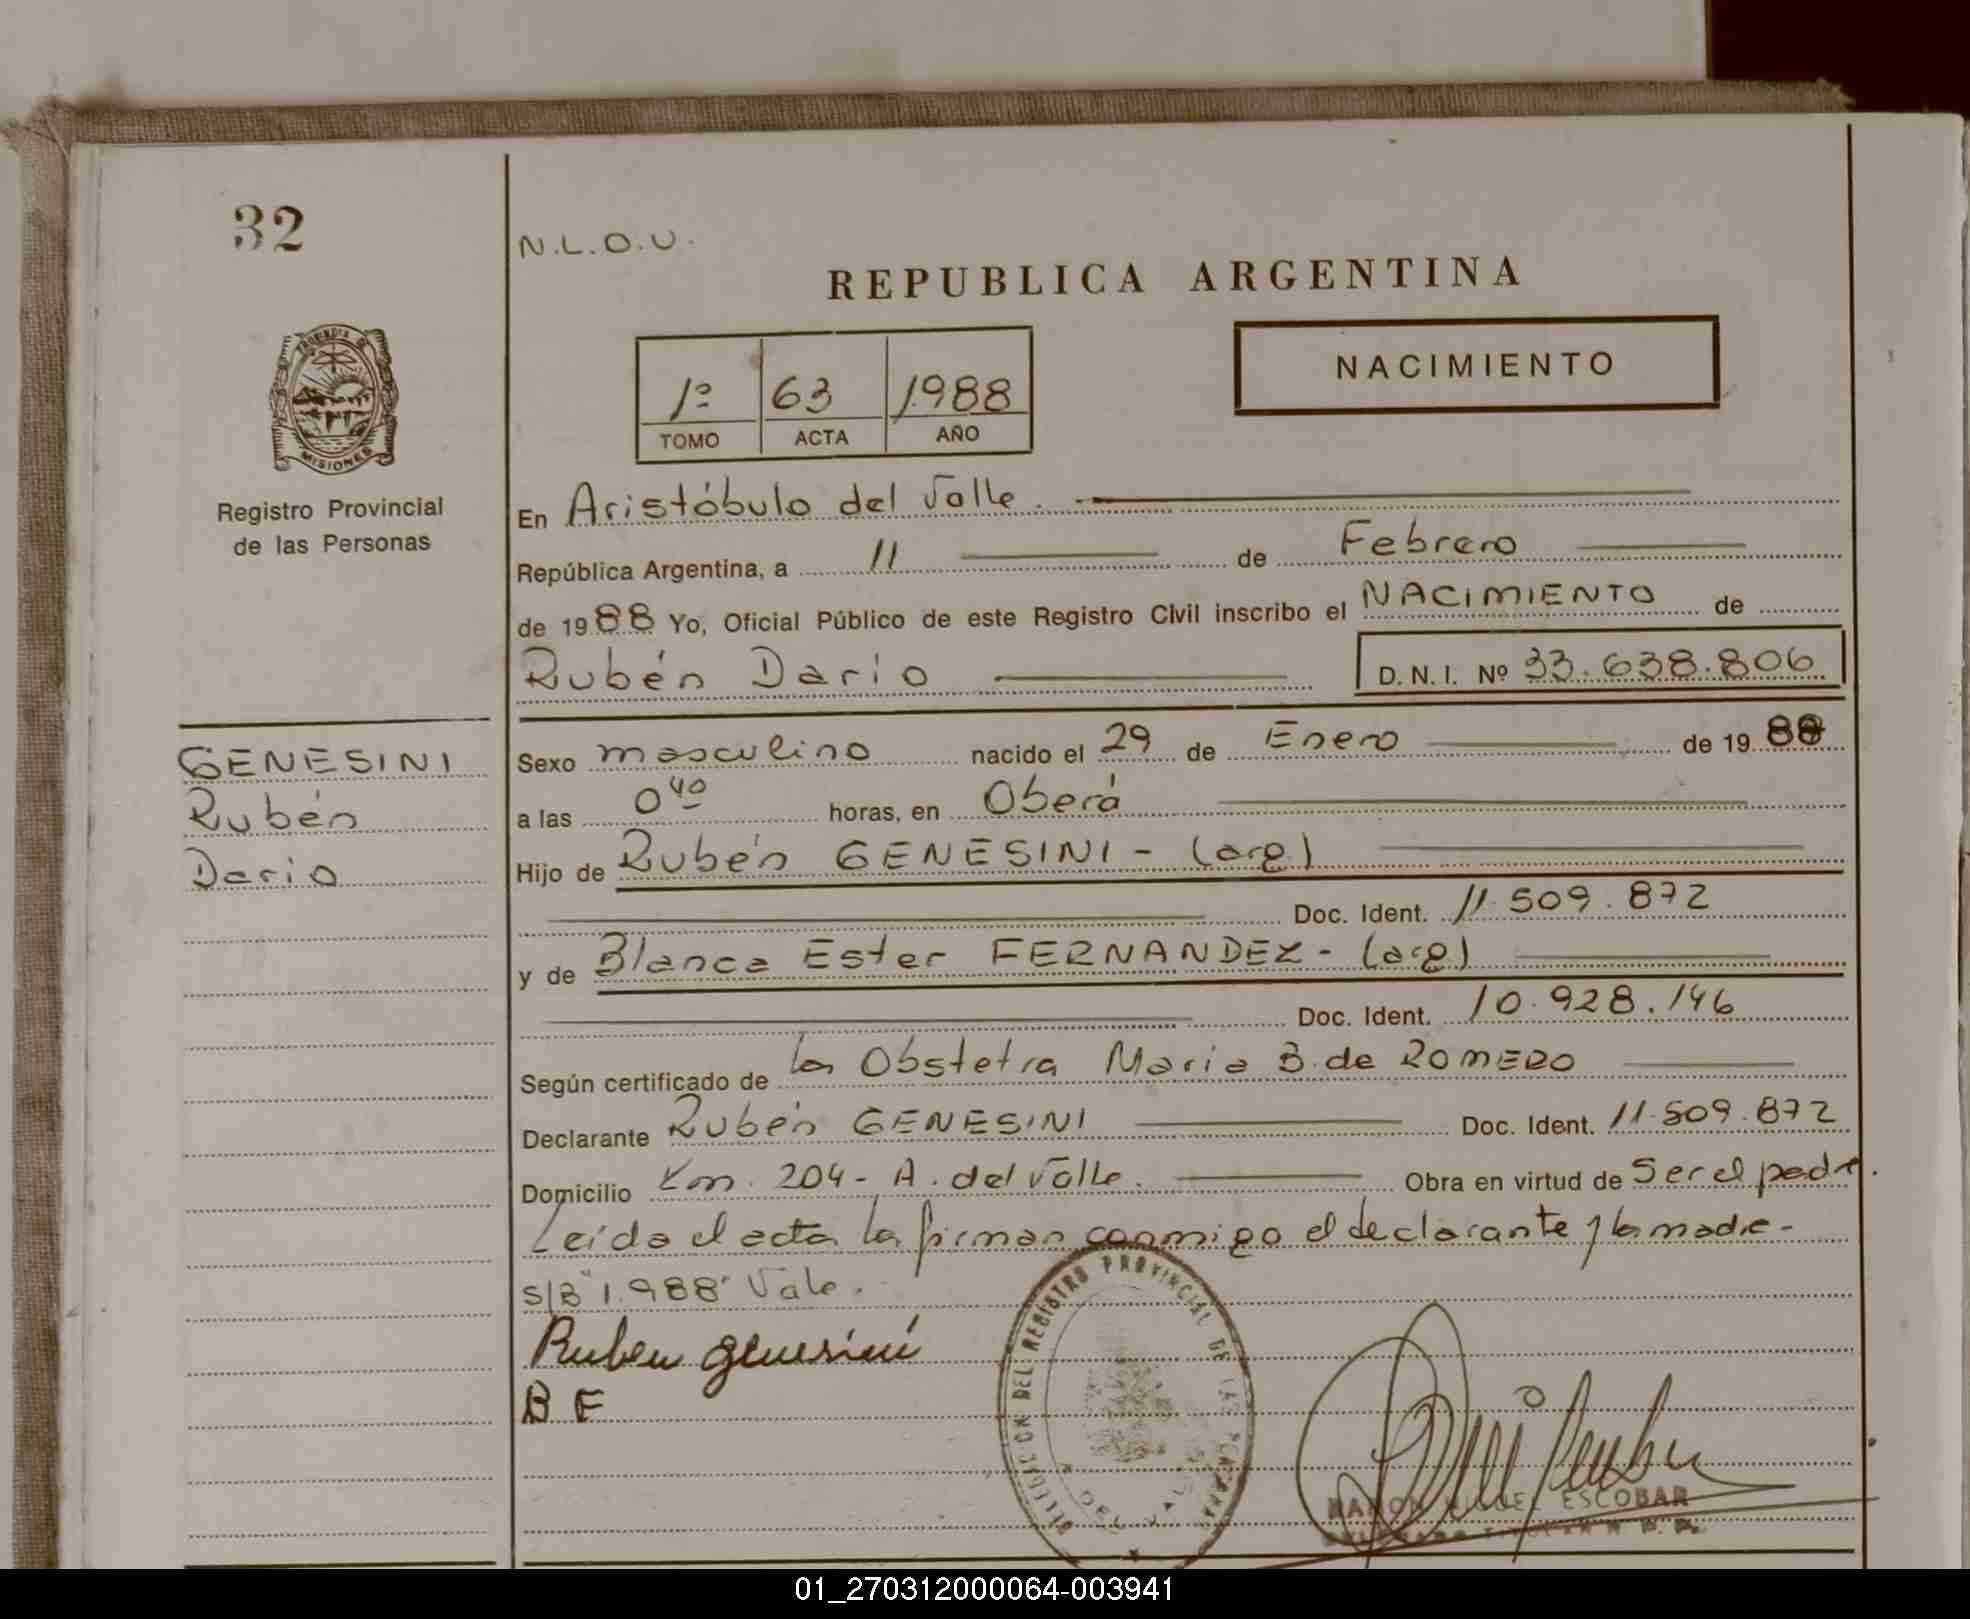 32
N.L.O.U.
REPUBLICA ARGENTINA
NACIMIENTO
1º 63 1988
TOMO ACTA AÑO
MISIONES
Registro Provincial
de las Personas
En Aristóbulo del Valle.
República Argentina, a 11 de Febrero
de 1988 Yo, Oficial Público de este Registro Civil inscribo el NACIMIENTO de
Rubén Dario D.N.I. Nº 33.638.806
GENESINI
Rubén
Dario
Sexo masculino nacido el 29 de Enero de 1988
a las 0 40 horas, en Oberá
Hijo de Rubén GENESINI - (arg)
Doc. Ident. 11.509.872
y de Blanca Ester FERNANDEZ - (arg)
Doc. Ident. 10.928.146
Según certificado de la Obstetra Maria B. de ROMERO
Declarante Rubén GENESINI Doc. Ident. 11.509.872
Domicilio Km. 204 - A. del Valle. Obra en virtud de Ser el padre.
Leída el acta la firman conmigo el declarante y la madre -
S/B "1.988" Vale.
Ruben genesini
B F
DELEGACION DEL REGISTRO PROVINCIAL DE LAS PERSONAS
A. DEL VALLE
RAMON MIGUEL ESCOBAR
01_270312000064-003941